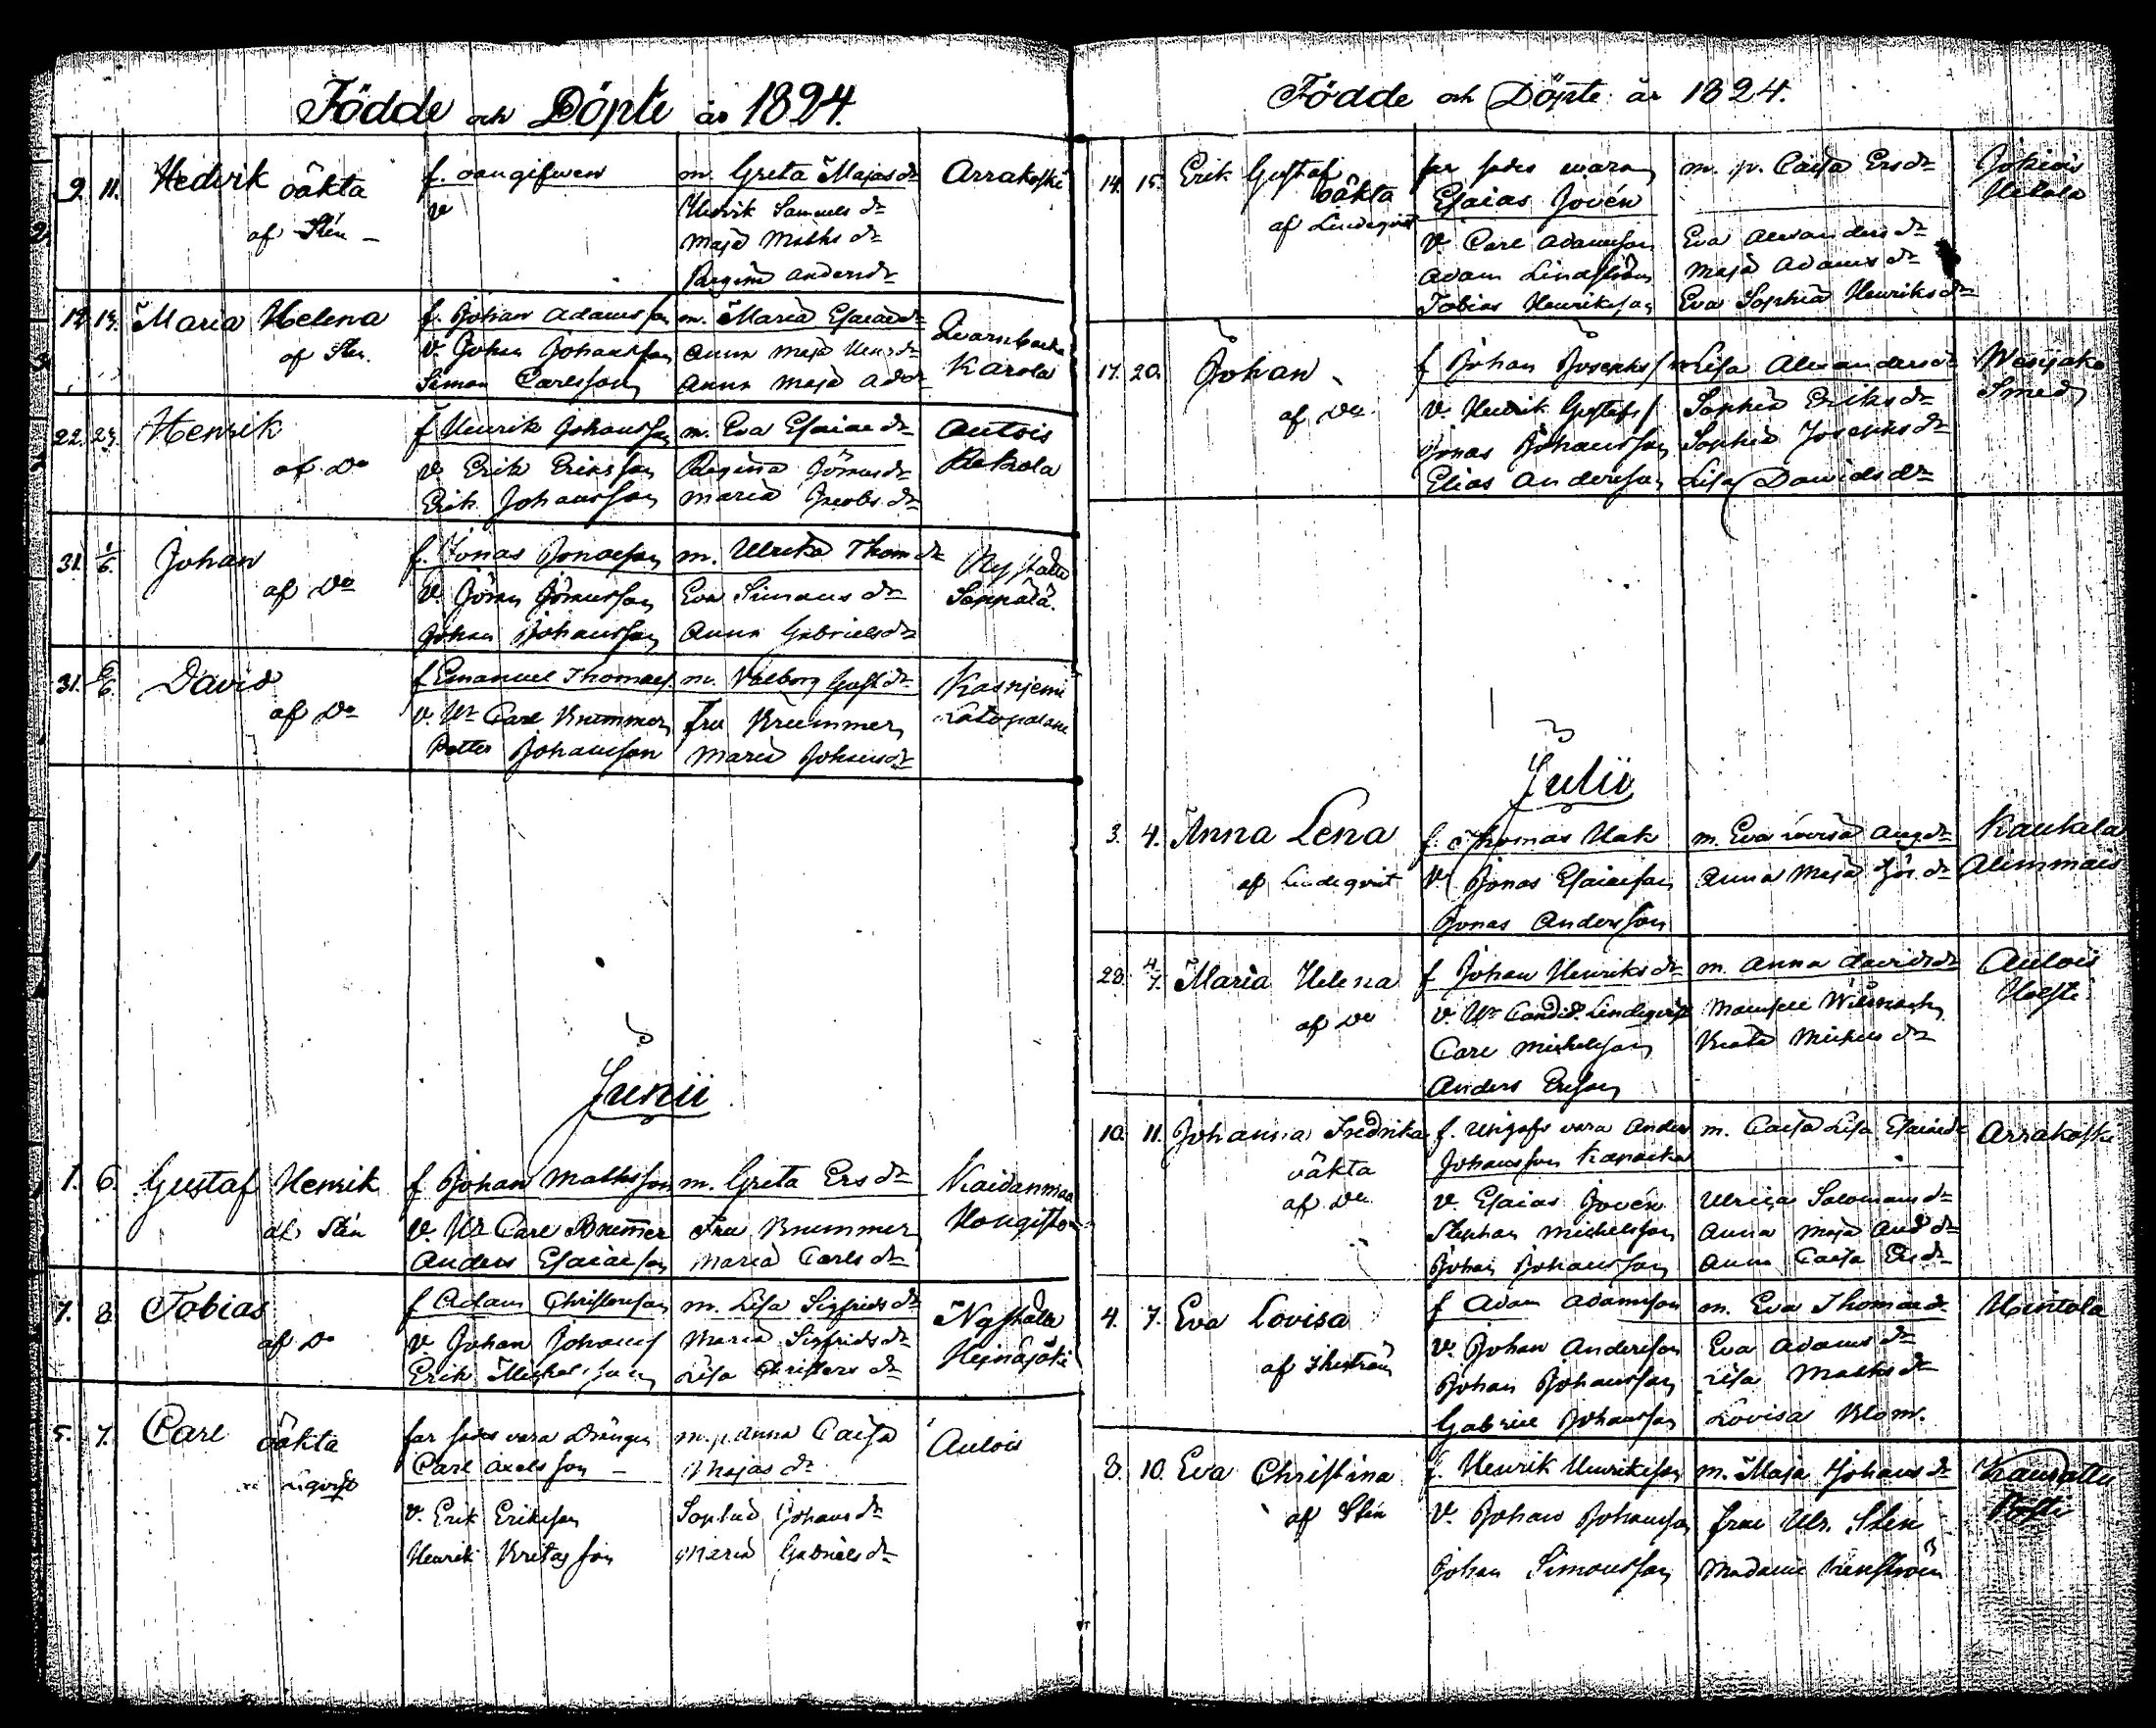 Födde och Döpte år 1824.
9. 11. Hedvik oäkta f. oangifwen m. Greta Majas dr Arrakoski
af Stén v Hedvik Samuels dr
Maja Maths dr
Regina Anders dr
12. 13. Maria Helena f. Johan Adamsson m. Maria Esaiae dr Quarnbacka
af Stén. v. Johan Johansson Anna Maja Hens dr Karola
Simon Carlsson Anna Maja Ad dr
22. 23. Henrik f Henrik Johansson m. Eva Esaiae dr Autois
af Do v Erik Eriksson Regina Jörans dr Kekola
Erik Johansson Maria Jacobs dr
31. 1/6. Johan f. Jonas Jonasson m. Ulrika Thom dr Nystala
af Do v. Jöran Jöransson Eva Simons dr Seppälä.
Johan Johansson Anna Gabriels dr
31. 6/6. David f Emanuel Thomas. m. Valborg Gust dr Kasniemi
af Do v. Hr Carl Brummer fru Brummer
Petter Johansson Maria Johans dr
Junii
1. 6. Gustaf Henrik f Johan Mathsson m. Greta Ers dr Kaidanmaa
af Stén v. Hr Carl Brummer Fru Brummer
Anders Esaiaesson Maria Carls dr
7. 8. Tobias f Adam Christersson m. Lisa Sigfrids dr Nystala
af Do v Johan Johans Maria Sigfrids dr Heinäjöki
Erik Michelsson Lisa Christers dr
5. 7. Carl oäkta far sades vara drängen m. p. Anna Caisa Autois
Carl Axelsson Majas dr
v. Erik Eriksson Sophia Johans dr
Henrik Maria Gabriels dr
Födde och Döpte år 1824.
14. 15. Erik Gustaf far sades wara m. p. Caisa Ers dr Jokiois
oäkta Esaias Jovén
af Lindeqvist v. Carl Adamsson Eva Alexanders dr
Adam Lindström Maja Adams dr
Tobias Henriksson Eva Sophia Henriks dr
17. 20. Johan f Johan Josephs m Lisa Alexanders dr Wesijako
af Do. v. Henrik Gustafs Sophia Eriks dr Smed
Jonas Johansson Sophia Josephs dr
Elias Andersson Lisa Davids dr
Julii
3. 4. Anna Lena f. Thomas Hak m. Eva Lovisa Aug dr Kaukala
af Lindeqvist v. Jonas Esaiaesson Anna Maja Jör dr Alimmais
Jonas Andersson
28. 4/7. Maria Helena f Johan Henriks dr m. Anna Davids dr Autois
af Do v. Hr Candid. Lindeqvist Mamsell Holsti
Carl Michelsson Beata Michels dr
Anders Ersson
10. 11. Johanna Fredrika f. Anders m. Caisa Lisa Esaiae dr Arrakoski
oäkta Johansson
af Do v. Esaias Jovén Ulrica Salomons dr
Stephan Michelsson Anna Maja And dr
Johan Johansson Anna Caisa Ers dr
4. 7. Eva Lovisa f Adam Adamsson m. Eva Thomae dr Hintola
v. Johan Andersson Eva Adams dr
Johan Johansson Lisa Maths dr
Gabriel Johansson Lovisa Blom.
8. 10. Eva Christina f. Henrik Henriksson m. Maja Johans dr
af Stén v. Johan Johansson Frau Ulr. Stén
Johan Simonsson Madame